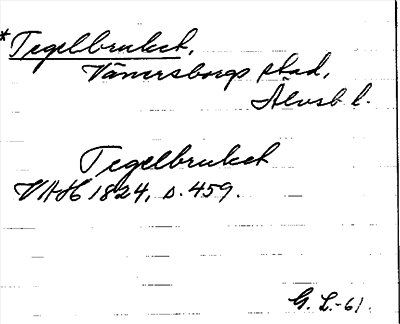 *Tegelbruket,
Vänersborgs stad,
Älvsb l.
Tegelbruket
VAH 1824, s. 459.
G. L.-61.